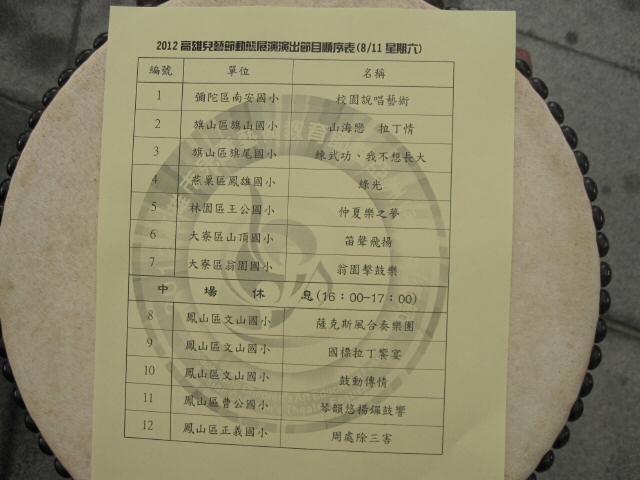 2012 高雄兒藝節動態展演演出節目順序表(8/11 星期六)
編號 單位 名稱
1 彌陀區南安國小 校園說唱藝術
2 旗山區旗山國小 山海戀 拉丁情
3 旗山區旗尾國小 練武功、我不想長大
4 燕巢區鳳雄國小 綠光
5 林園區王公國小 仲夏樂之夢
6 大寮區山頂國小 笛聲飛揚
7 大寮區翁園國小 翁園擊鼓樂
中場休息(16：00-17：00)
8 鳳山區文山國小 薩克斯風合奏樂團
9 鳳山區文山國小 國標拉丁饗宴
10 鳳山區文山國小 鼓動傳情
11 鳳山區曹公國小 琴韻悠揚鑼鼓響
12 鳳山區正義國小 周處除三害